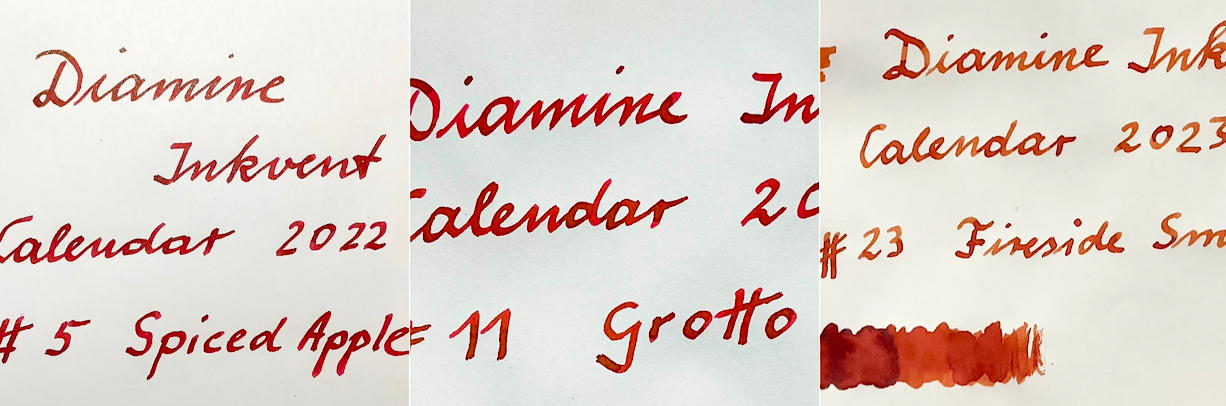 Diamine
Inkvent
Calendar 2022
# 5 Spiced Apple
Diamine In
Calendar 20
11 Grotto
Diamine Ink
Calendar 2023
# 23 Fireside Sn